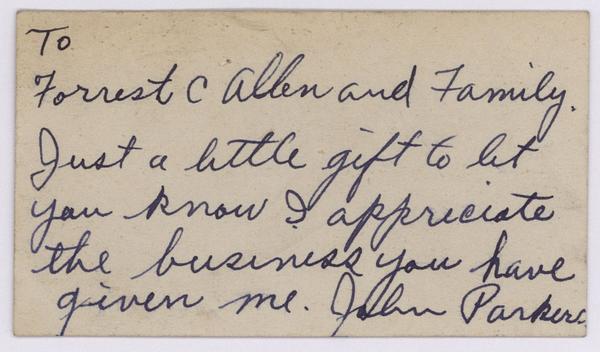 To
Forrest C Allen and Family.
Just a little gift to let
you know I appreciate
the business you have
given me. John Parker